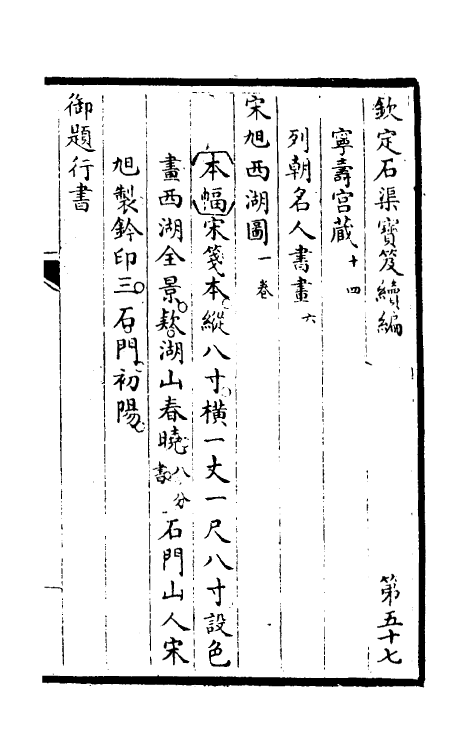 欽定石渠寶笈續編 第五十七
寧壽宮藏十四
列朝名人書畫六
宋旭西湖圖一卷
本幅宋箋本縱八寸橫一丈一尺八寸設色
畫西湖全景欵湖山春曉八分書石門山人宋
旭製鈐印三石門初暘
御題行書